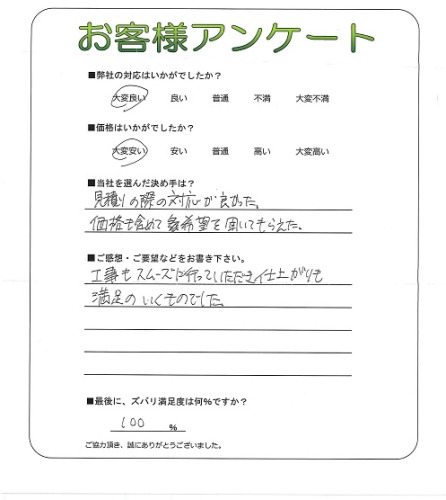 お客様アンケート
■弊社の対応はいかがでしたか？
大変良い 良い 普通 不満 大変不満
■価格はいかがでしたか？
大変安い 安い 普通 高い 大変高い
■当社を選んだ決め手は？
見積りの際の対応が良かった。
価格も含めて希望を聞いてもらえた。
■ご感想・ご要望などをお書き下さい。
工事もスムーズに行っていただき仕上がりも
満足のいくものでした。
■最後に、ズバリ満足度は何％ですか？
100 ％
ご協力頂き、誠にありがとうございました。